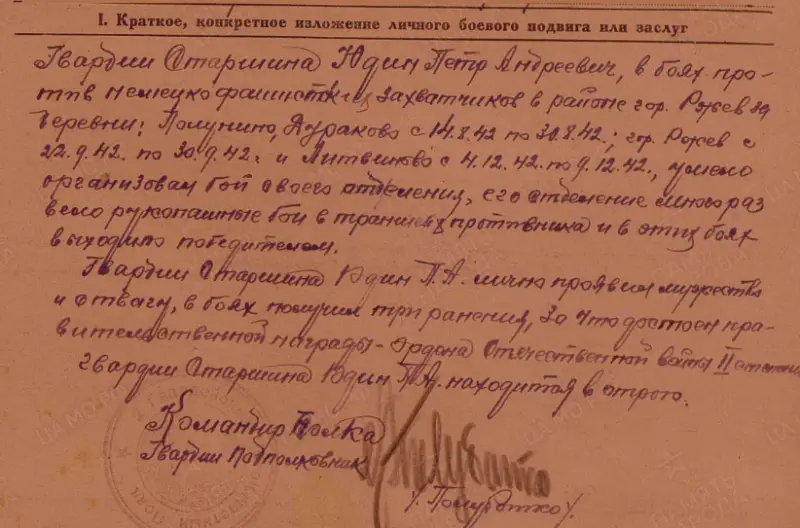 I. Краткое, конкретное изложение личного боевого подвига или заслуг
Гвардии Старшина Юдин Петр Андреевич, в боях про-
тив немецко фашистских захватчиков в районе гор. Ржев за
деревни: Полунино, Дураково с 14.8.42 по 30.8.42.; гор. Ржев с
22.9.42. по 30.9.42. и Литвиново с 4.12.42. по 9.12.42., умело
организовал бой своего отделения, его отделение много раз
вело рукопашные бои в траншеях противника и в этих боях
выходило победителем.
Гвардии Старшина Юдин П.А. лично проявил мужество
и отвагу, в боях получил три ранения, за что достоен пра-
вительственной награды - Ордена Отечественной войны II степени
Гвардии Старшина Юдин П.А. находится в строю.
Командир Полка
Гвардии Подполковник
/Голубятко/.